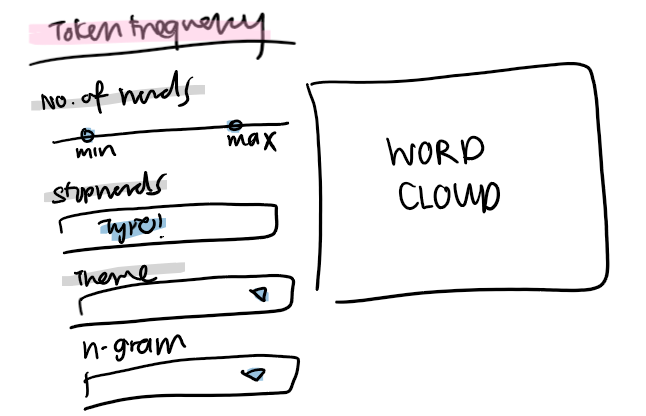 Token Frequency
No. of words
min
max
stopwords
Type!
Theme
n-gram
WORD
CLOUD